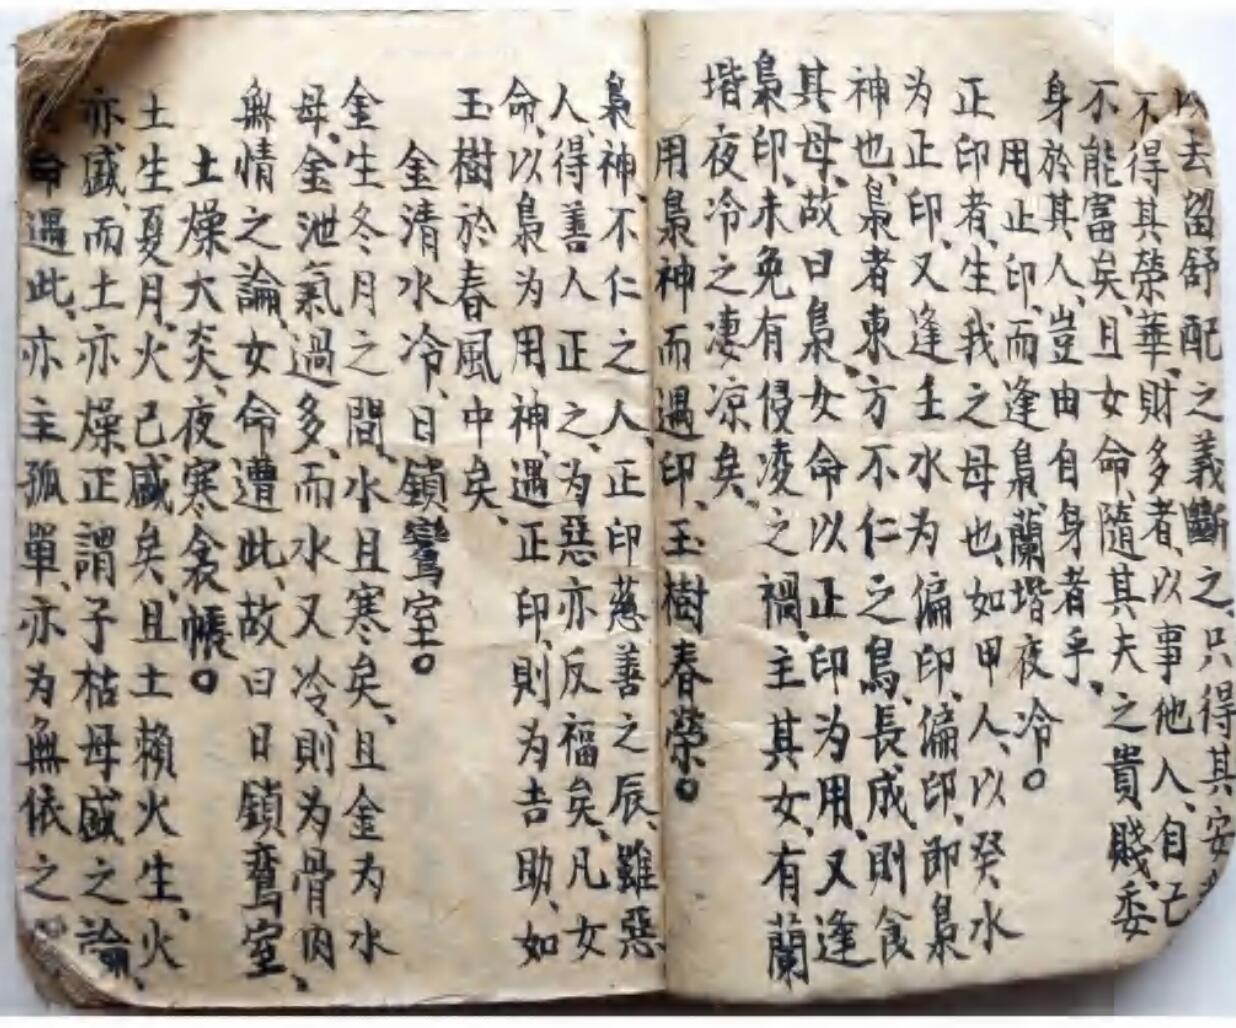 去留舒配之義斷之、只得其安
不得其榮華、財多者、以事他人、自己
不能富矣、且女命、隨其夫之貴賤、委
身於其人、豈由自身者乎、
用正印、而逢梟、蘭堦夜冷。
正印者、生我之母也、如甲人、以癸水
为正印、又逢壬水为偏印、偏印、即梟
神也、梟者東方不仁之鳥、長成、則食
其母、故曰梟、女命以正印为用、又逢
梟印、未免有侵凌之禍、主其女、有蘭
堦夜冷之凄凉矣、
用梟神而遇印、玉樹春榮。
梟神、不仁之人、正印慈善之辰、雖惡
人、得善人正之、为惡亦反福矣、凡女
命、以梟为用神、遇正印、則为吉助、如
玉樹於春風中矣、
金清水冷、日鎖鸞室。
金生冬月之間、水且寒矣、且金为水
母、金泄氣過多、而水又冷、則为骨肉
無情之論、女命遭此、故曰日鎖鸞室、
土燥火炎、夜寒衾帳。
土生夏月、火已盛矣、且土賴火生、火
亦盛、而土亦燥、正謂子枯母盛、之論、
命遇此、亦主孤單、亦为無依之